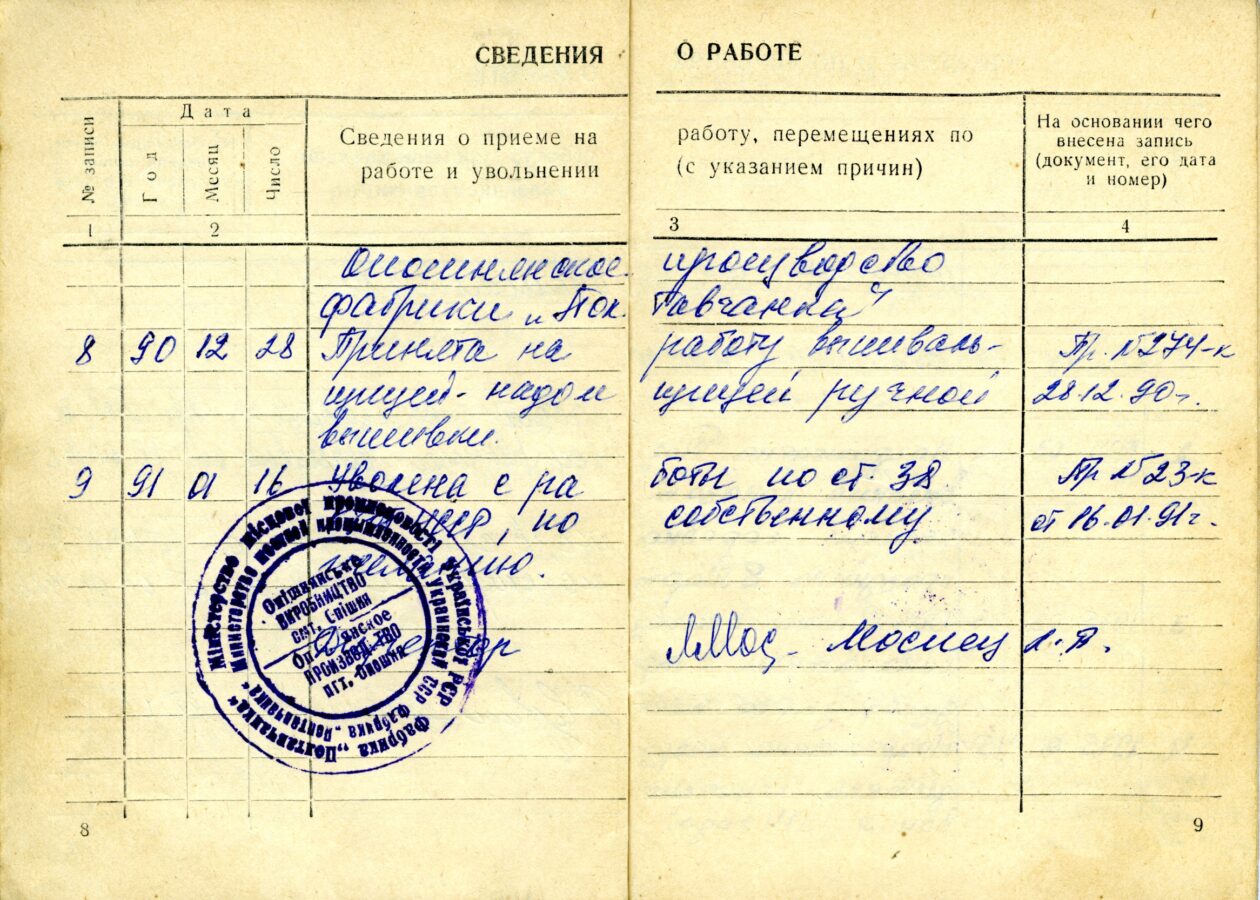 СВЕДЕНИЯ О РАБОТЕ
№ записи
Дата
Год
Месяц
Число
Сведения о приеме на работу, перемещениях по
работе и увольнении (с указанием причин)
На основании чего
внесена запись
(документ, его дата
и номер)
1 2 3 4
Опошнянское производство
фабрики „Полтавчанка"
8 90 12 28 Принята на работу вышиваль- Пр. №274-к
щицей-надомницей ручной 28.12.90г.
вышивки.
9 91 01 16 Уволена с работы по ст. 38 Пр №23-к
по собственному от 16.01.91г.
желанию.
Директор Мосиец
Міністерство місцевої промисловості Української РСР
Фабрика „Полтавчанка"
Министерство местной промышленности Украинской ССР
фабрика „Полтавчанка"
Опішнянське
ВИРОБНИЦТВО
смт. Опішня
ПРОИЗВОДСТВО
пгт. Опошня
8
9